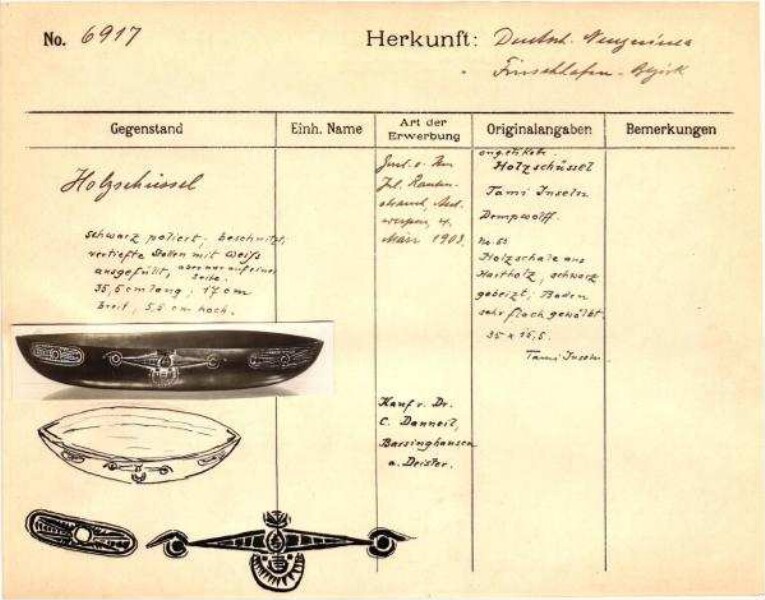 No. 6917
Herkunft: Deutsch. Neuguinea
Finschhafen-Bezirk
Gegenstand
Einh. Name
Art der
Erwerbung
Originalangaben
Bemerkungen
Holzschüssel
schwarz poliert; beschnitzt,
vertiefte Stellen mit Weiß
ausgefüllt, aber nur auf einer
Seite.
35,5 cm lang; 17 cm
breit, 5,5 cm hoch.
v.
Jul. Rauten-
strauch, Ant-
werpen, 4.
März 1903.
Kauf v. Dr.
C. Danneil,
Barsinghausen
a. Deister.
Holzschüssel
Tami Inseln
Dempwolff.
No. 65
Holzschale aus
Hartholz, schwarz
gebeizt; Boden
sehr flach gewölbt.
35 x 16,5.
Tami Inseln.